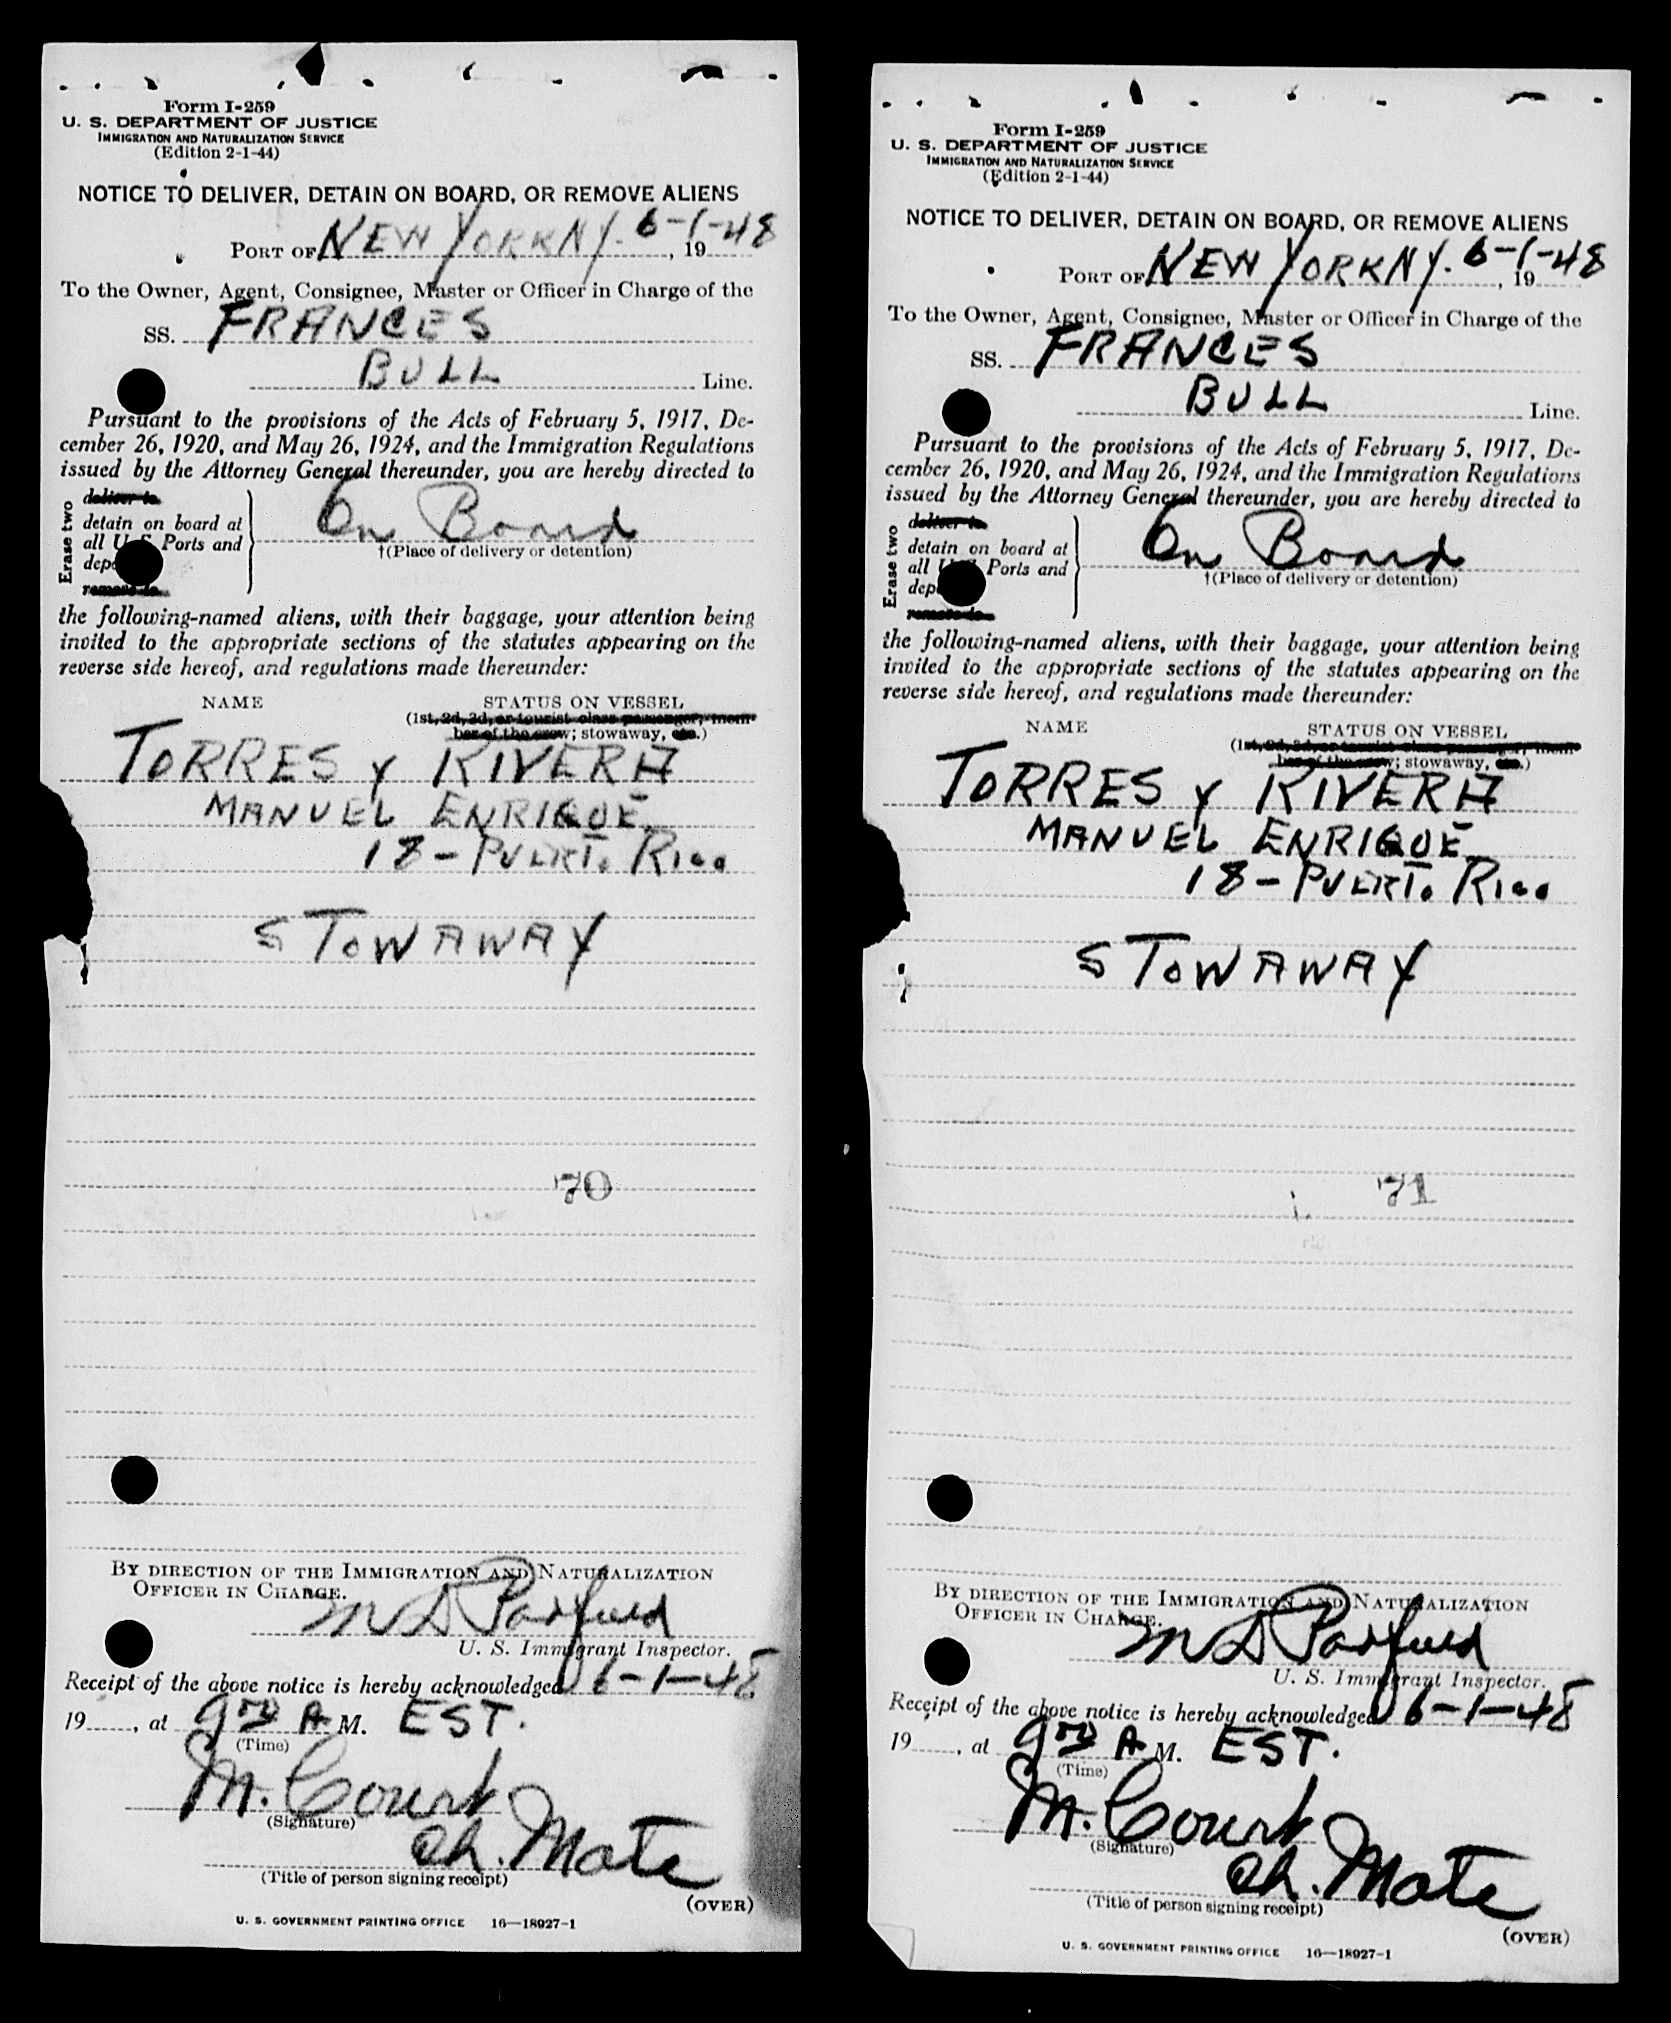 Form I-259
U. S. DEPARTMENT OF JUSTICE
IMMIGRATION AND NATURALIZATION SERVICE
(Edition 2-1-44)
NOTICE TO DELIVER, DETAIN ON BOARD, OR REMOVE ALIENS
PORT OF NEW YORK NY. 6-1-48, 19
To the Owner, Agent, Consignee, Master or Officer in Charge of the
SS. FRANCES
BULL Line.
Pursuant to the provisions of the Acts of February 5, 1917, De-
cember 26, 1920, and May 26, 1924, and the Immigration Regulations
issued by the Attorney General thereunder, you are hereby directed to
Erase two
deliver to
detain on board at
all U. S. Ports and
On Board
†(Place of delivery or detention)
remove to
the following-named aliens, with their baggage, your attention being
invited to the appropriate sections of the statutes appearing on the
reverse side hereof, and regulations made thereunder:
NAME STATUS ON VESSEL
(1st, 2d, 3d, or tourist class passenger, mem-
ber of the crew; stowaway, etc.)
TORRES y RIVERA
MANUEL ENRIQUE
18 - PUERTO RICO
STOWAWAY
70
BY DIRECTION OF THE IMMIGRATION AND NATURALIZATION
OFFICER IN CHARGE.
U. S. Immigrant Inspector.
Receipt of the above notice is hereby acknowledged 6-1-48
19, at A M. EST.
(Time)
M. Court
(Signature)
Ch. Mate
(Title of person signing receipt)
(OVER)
U. S. GOVERNMENT PRINTING OFFICE 16—18927-1
Form I-259
U. S. DEPARTMENT OF JUSTICE
IMMIGRATION AND NATURALIZATION SERVICE
(Edition 2-1-44)
NOTICE TO DELIVER, DETAIN ON BOARD, OR REMOVE ALIENS
PORT OF NEW YORK NY. 6-1-48, 19
To the Owner, Agent, Consignee, Master or Officer in Charge of the
SS. FRANCES
BULL Line.
Pursuant to the provisions of the Acts of February 5, 1917, De-
cember 26, 1920, and May 26, 1924, and the Immigration Regulations
issued by the Attorney General thereunder, you are hereby directed to
Erase two
deliver to
detain on board at
all U. S. Ports and
On Board
†(Place of delivery or detention)
remove to
the following-named aliens, with their baggage, your attention being
invited to the appropriate sections of the statutes appearing on the
reverse side hereof, and regulations made thereunder:
NAME STATUS ON VESSEL
(1st, 2d, 3d, or tourist class passenger, mem-
ber of the crew; stowaway, etc.)
TORRES y RIVERA
MANUEL ENRIQUE
18 - PUERTO RICO
STOWAWAY
71
BY DIRECTION OF THE IMMIGRATION AND NATURALIZATION
OFFICER IN CHARGE.
U. S. Immigrant Inspector.
Receipt of the above notice is hereby acknowledged 6-1-48
19, at A M. EST.
(Time)
M. Court
(Signature)
Ch. Mate
(Title of person signing receipt)
(OVER)
U. S. GOVERNMENT PRINTING OFFICE 16—18927-1